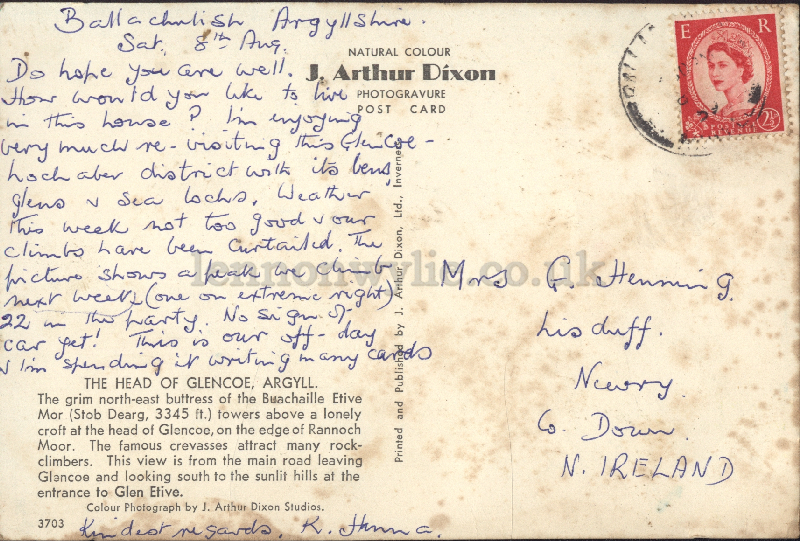 Ballachulish Argyllshire.
Sat, 8th Aug.
Do hope you are well.
How would you like to live
in this house? I'm enjoying
very much re-visiting this Glencoe-
Lochaber district with its bens,
glens & sea lochs. Weather
this week not too good & our
climbs have been curtailed. The
picture shows a peak we climb
next week (one on extreme right)
22 in the party. No sign of
car yet! This is our off-day
& I'm spending it writing many cards
THE HEAD OF GLENCOE, ARGYLL.
The grim north-east buttress of the Buachaille Etive
Mor (Stob Dearg, 3345 ft.) towers above a lonely
croft at the head of Glencoe, on the edge of Rannoch
Moor. The famous crevasses attract many rock-
climbers. This view is from the main road leaving
Glencoe and looking south to the sunlit hills at the
entrance to Glen Etive.
Colour Photograph by J. Arthur Dixon Studios.
3703
Kindest regards. R. Hanna.
NATURAL COLOUR
J. Arthur Dixon
PHOTOGRAVURE
POST CARD
Printed and Published by J. Arthur Dixon, Ltd., Inverness
E R
POSTAGE
REVENUE
2½
Mrs G. Henning.
Lisduff.
Newry
Co Down.
N. IRELAND
lennonwylie.co.uk